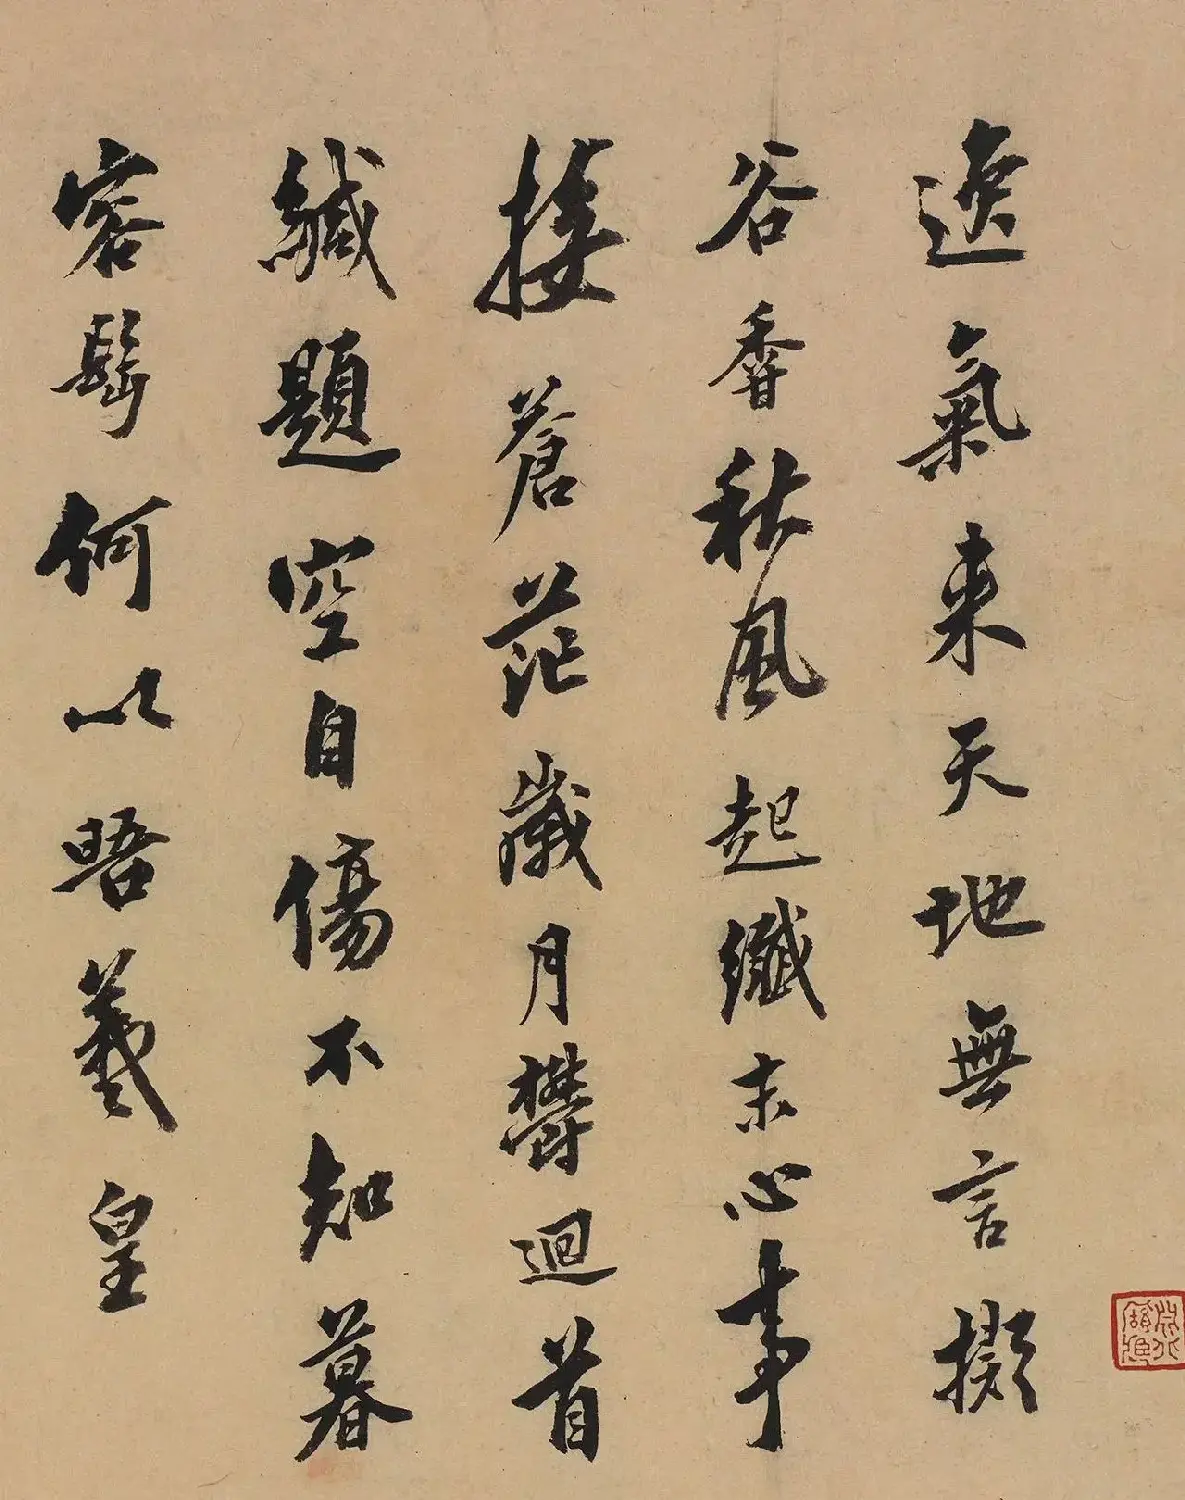 逸氣来天地無言擬
谷香秋風起纖末心事
接蒼茫歲月鬱迴首
緘題空自傷不知暮
容髩何以晤羲皇